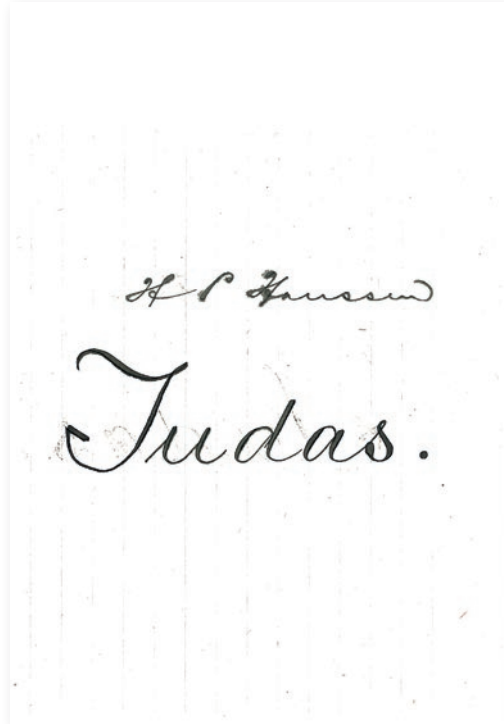 H P Hanssen
Judas.